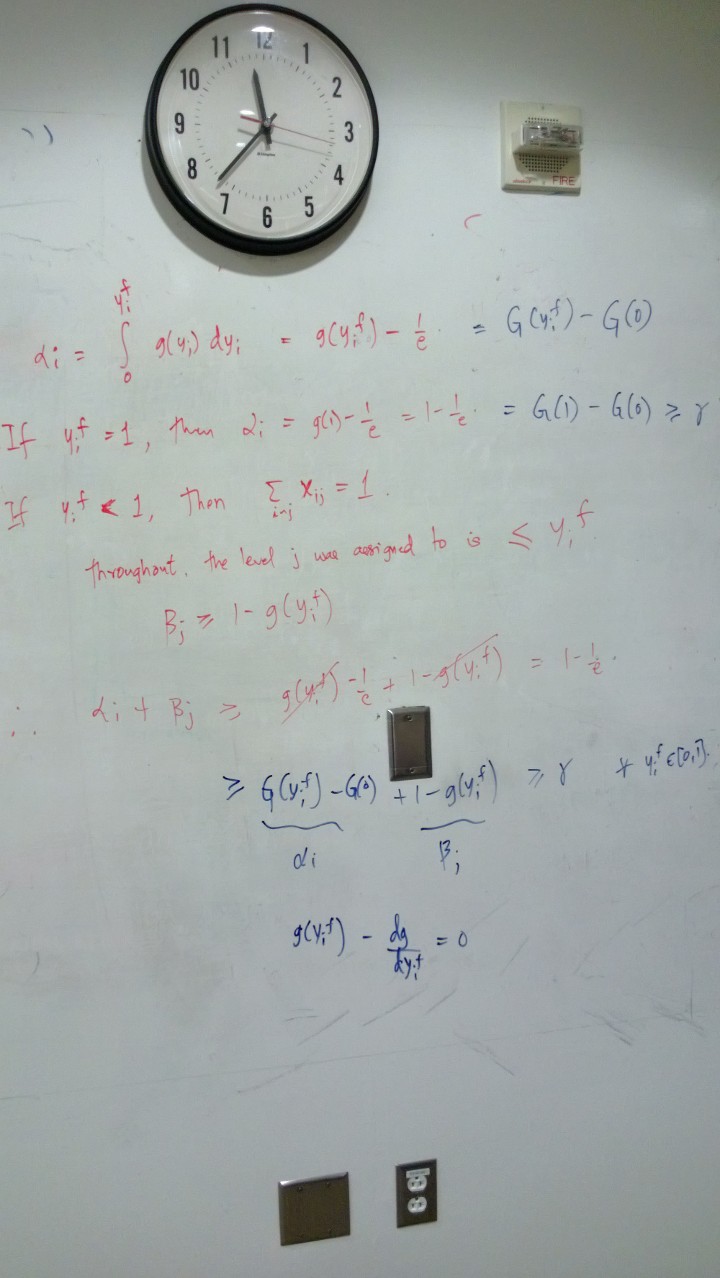 12
1
2
3
4
5
6
7
8
9
10
11
FIRE
αᵢ = ∫₀^{yᵢᶠ} g(yᵢ) dyᵢ = g(yᵢᶠ) - 1/e. = G(yᵢᶠ) - G(0)
If yᵢᶠ = 1, then αᵢ = g(1) - 1/e = 1 - 1/e. = G(1) - G(0) ≥ γ
If yᵢᶠ < 1, Then Σ_{i~j} xᵢⱼ = 1.
throughout, the level j was assigned to is ≤ yᵢᶠ
βⱼ ≥ 1 - g(yᵢᶠ)
∴ αᵢ + βⱼ ≥ g(yᵢᶠ) - 1/e + 1 - g(yᵢᶠ) = 1 - 1/e.
≥ G(yᵢᶠ) - G(0) + 1 - g(yᵢᶠ) ≥ γ ∀ yᵢᶠ ∈ [0,1].
αᵢ βⱼ
g(yᵢᶠ) - dg/dyᵢᶠ = 0